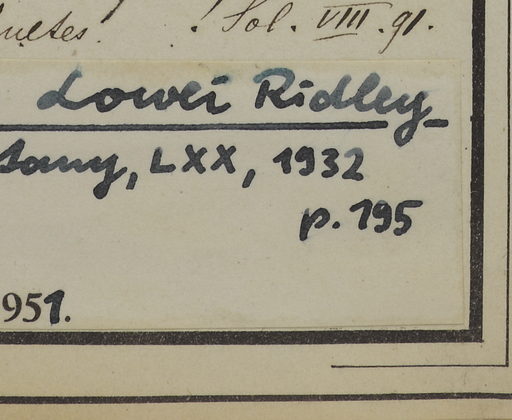 Sol. VIII. 91.
Lowei Ridley
tany, LXX, 1932
p. 195
951.